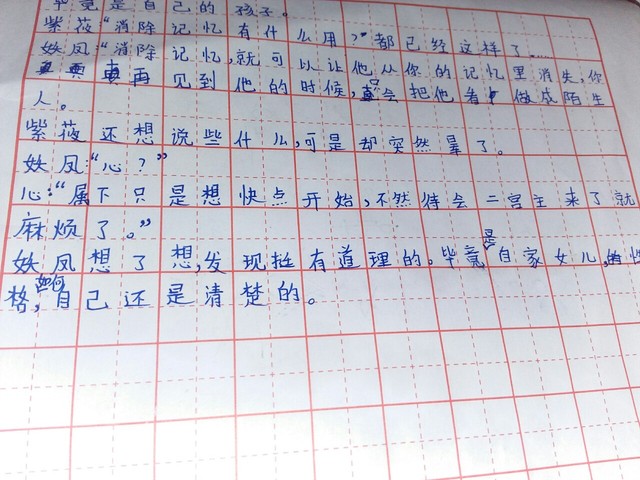 毕竟是自己的孩子。
紫薇“消除记忆有什么用?”都已经这样了……
妖凤:“消除记忆,就可以让他从你的记忆里消失,你
再见到他的时候,只会把他看做成陌生
人。
紫薇还想说些什么,可是却突然晕了。
妖凤:“心?”
心:“属下只是想快点开始,不然待会二宫主来了就
麻烦了。”
妖凤想了想,发现挺有道理的。毕竟是自家女儿,性
格如何,自己还是清楚的。